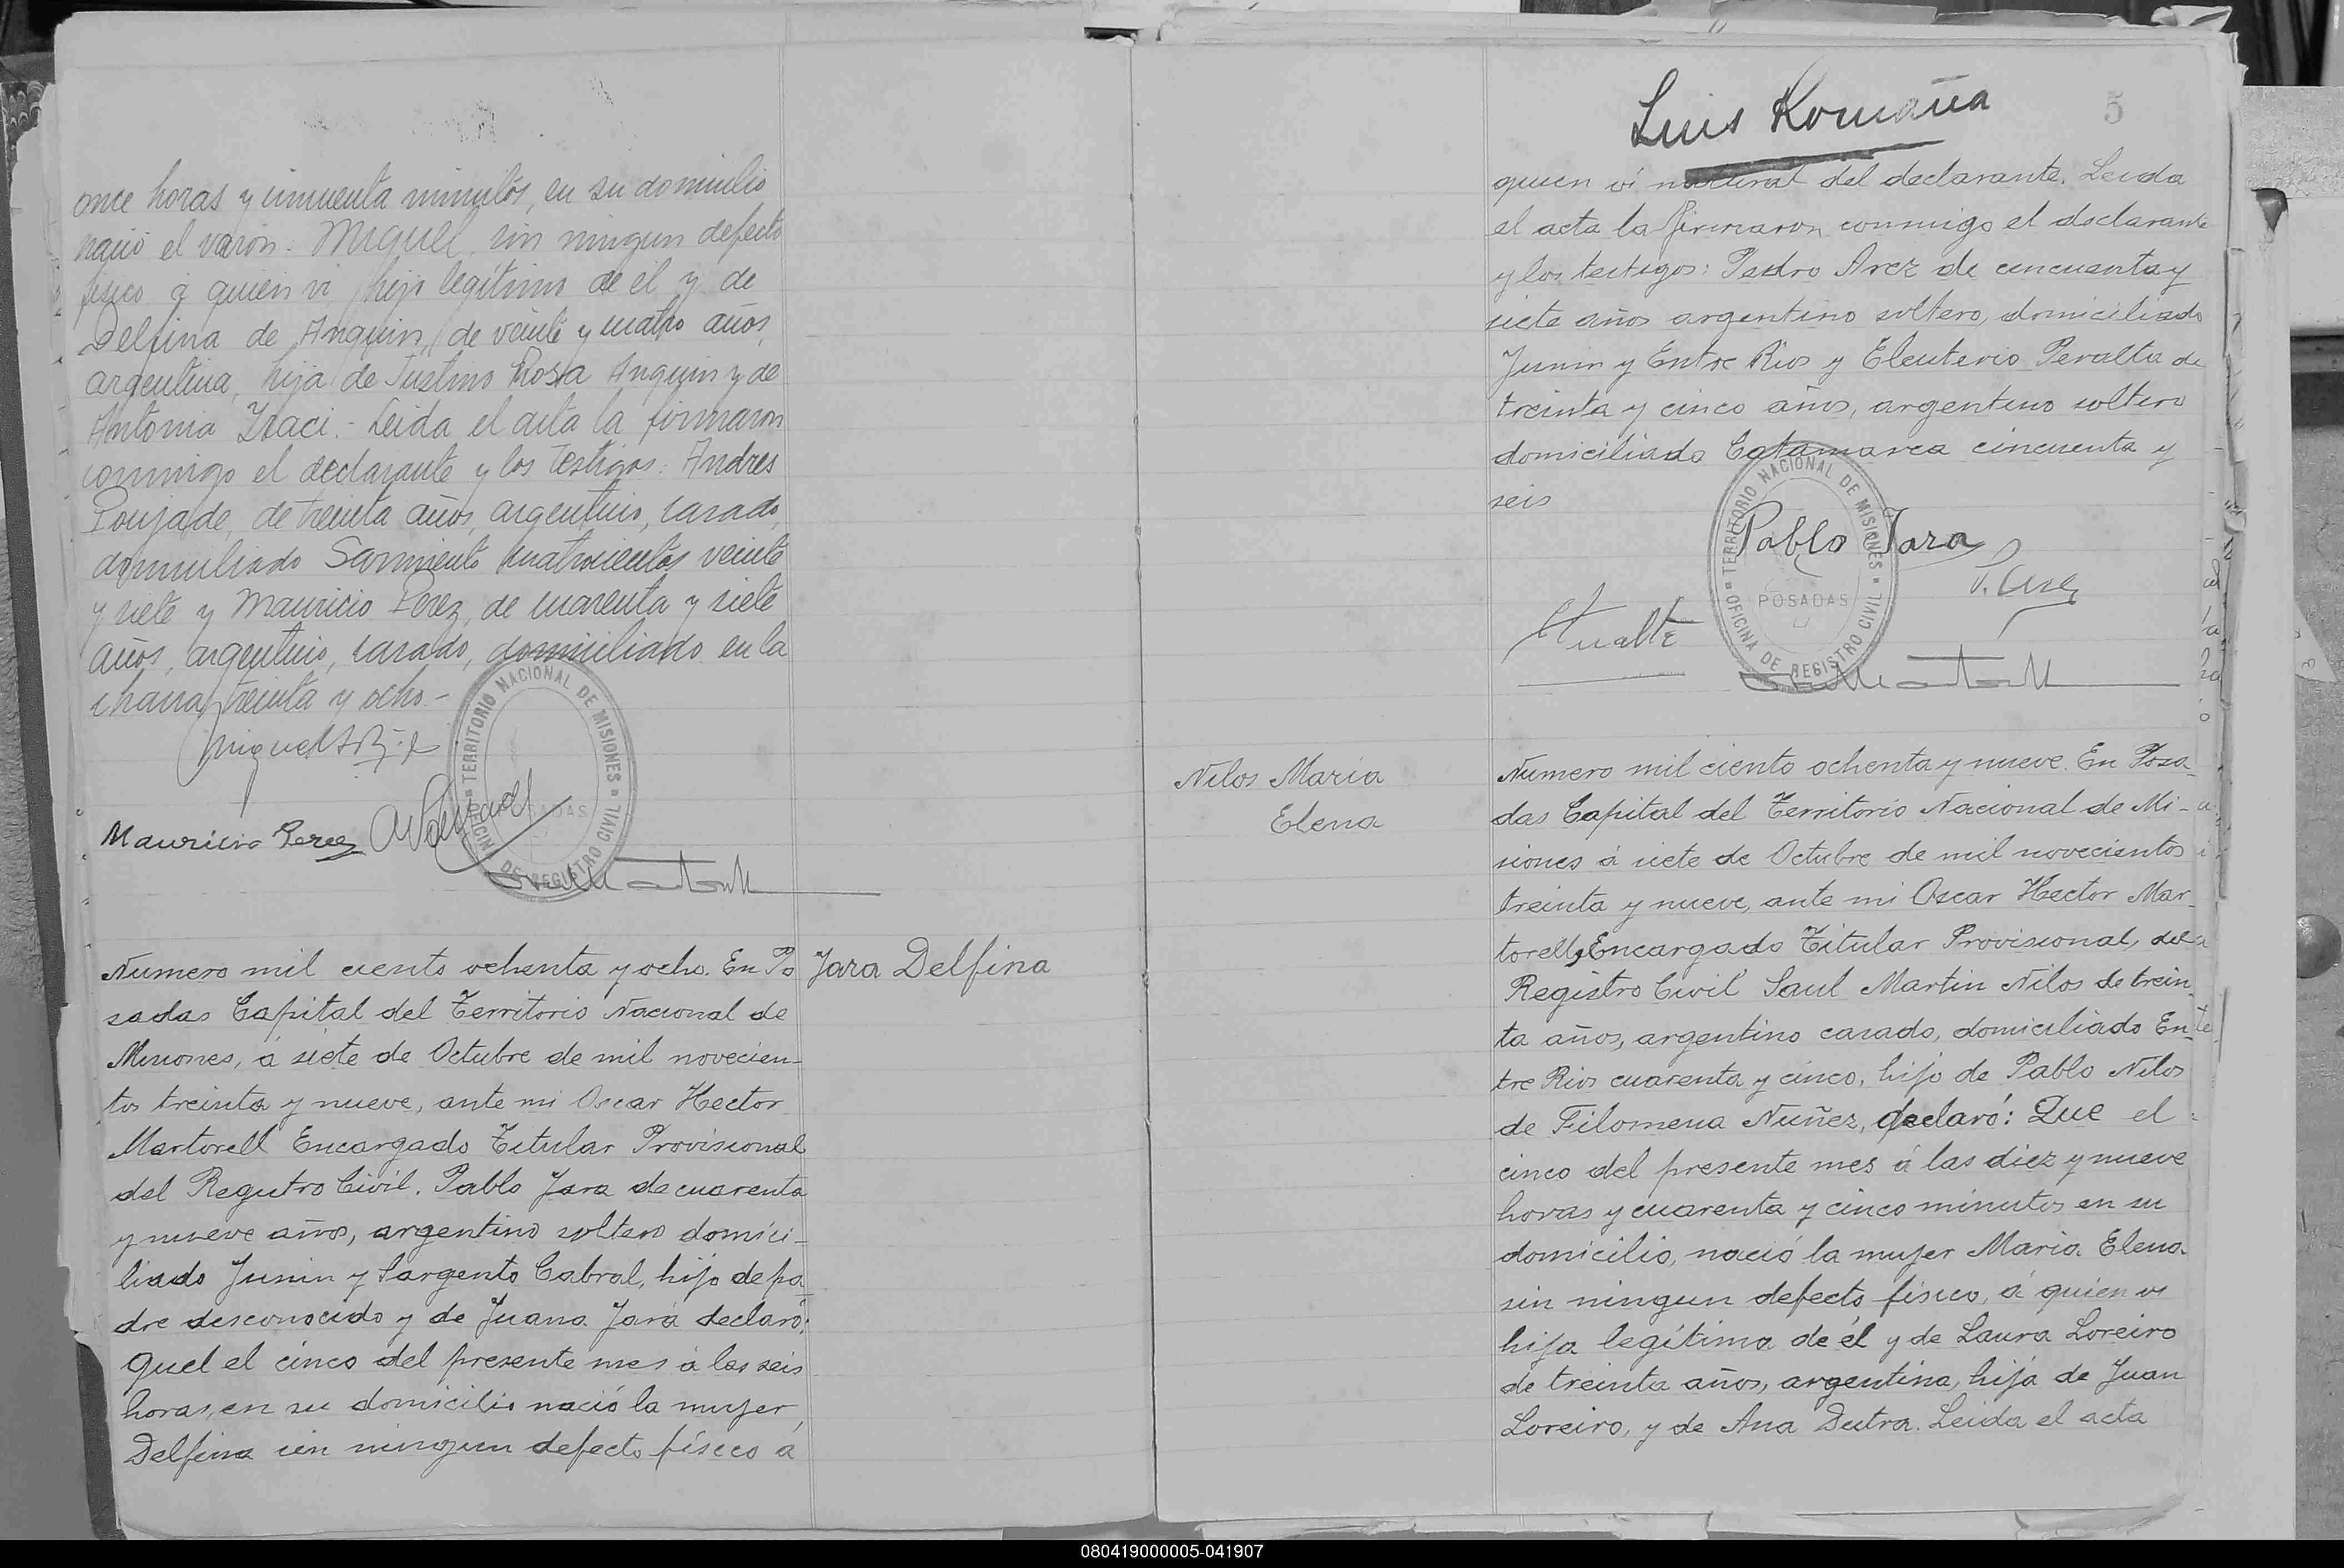 once horas y cincuenta minutos, en su domicilio
nació el varón: Miguel, sin ningun defecto
fisico á quien vi hijo legítimo de el y de
Delfina de Anquin, de veinte y cuatro años,
argentina, hija de Justino Rosa Anquin y de
Antonia Iraci.- Leida el acta la firmaron
conmigo el declarante y los testigos: Andres
Poujade, de treinta años, argentino, casado,
domiciliado Sarmiento cuatrocientos veinte
y siete y Mauricio Perez, de cuarenta y siete
años, argentino, casado, domiciliado en la
chacra treinta y ocho.-
TERRITORIO NACIONAL DE MISIONES
POSADAS
OFICINA DE REGISTRO CIVIL
Mauricio Perez
Numero mil ciento ochenta y ocho. En Po
Jara Delfina
sadas Capital del Territorio Nacional de
Misiones, á siete de Octubre de mil novecien-
tos treinta y nueve, ante mi Oscar Hector
Martorell Encargado Titular Provisional
del Registro Civil. Pablo Jara de cuarenta
y nueve años, argentino soltero domici-
liado Junin y Sargento Cabral, hijo de pa
dre desconocido y de Juana Jara declaró:
Quel el cinco del presente mes á las seis
horas, en su domicilio nació la mujer,
Delfina sin ningun defecto físico á
Luis Romaña
5
quien ví natural del declarante. Leida
el acta la firmaron conmigo el declarante
y los testigos: Pedro Arez de cincuenta y
siete años argentino soltero, domiciliado
Junin y Entre Rios y Eleuterio Peralta de
treinta y cinco años, argentino soltero
domiciliado Catamarca cincuenta y
seis
TERRITORIO NACIONAL DE MISIONES
Pablo Jara
POSADAS
OFICINA DE REGISTRO CIVIL
Nilos Maria
Elena
Numero mil ciento ochenta y nueve. En Posa-
das Capital del Territorio Nacional de Mi-
siones á siete de Octubre de mil novecientos
treinta y nueve, ante mi Oscar Hector Mar-
torell, Encargado Titular Provisional, del
Registro Civil Saul Martin Nilos de trein-
ta años, argentino casado, domiciliado En-
tre Rios cuarenta y cinco, hijo de Pablo Nilos
de Filomena Nuñez, declaró: Que el
cinco del presente mes á las diez y nueve
horas y cuarenta y cinco minutos en su
domicilio, nació la mujer Maria Elena
sin ningun defecto físico, á quien vi
hija legítima de él y de Laura Loreiro
de treinta años, argentina, hija de Juan
Loreiro, y de Ana Dutra. Leida el acta
080419000005-041907